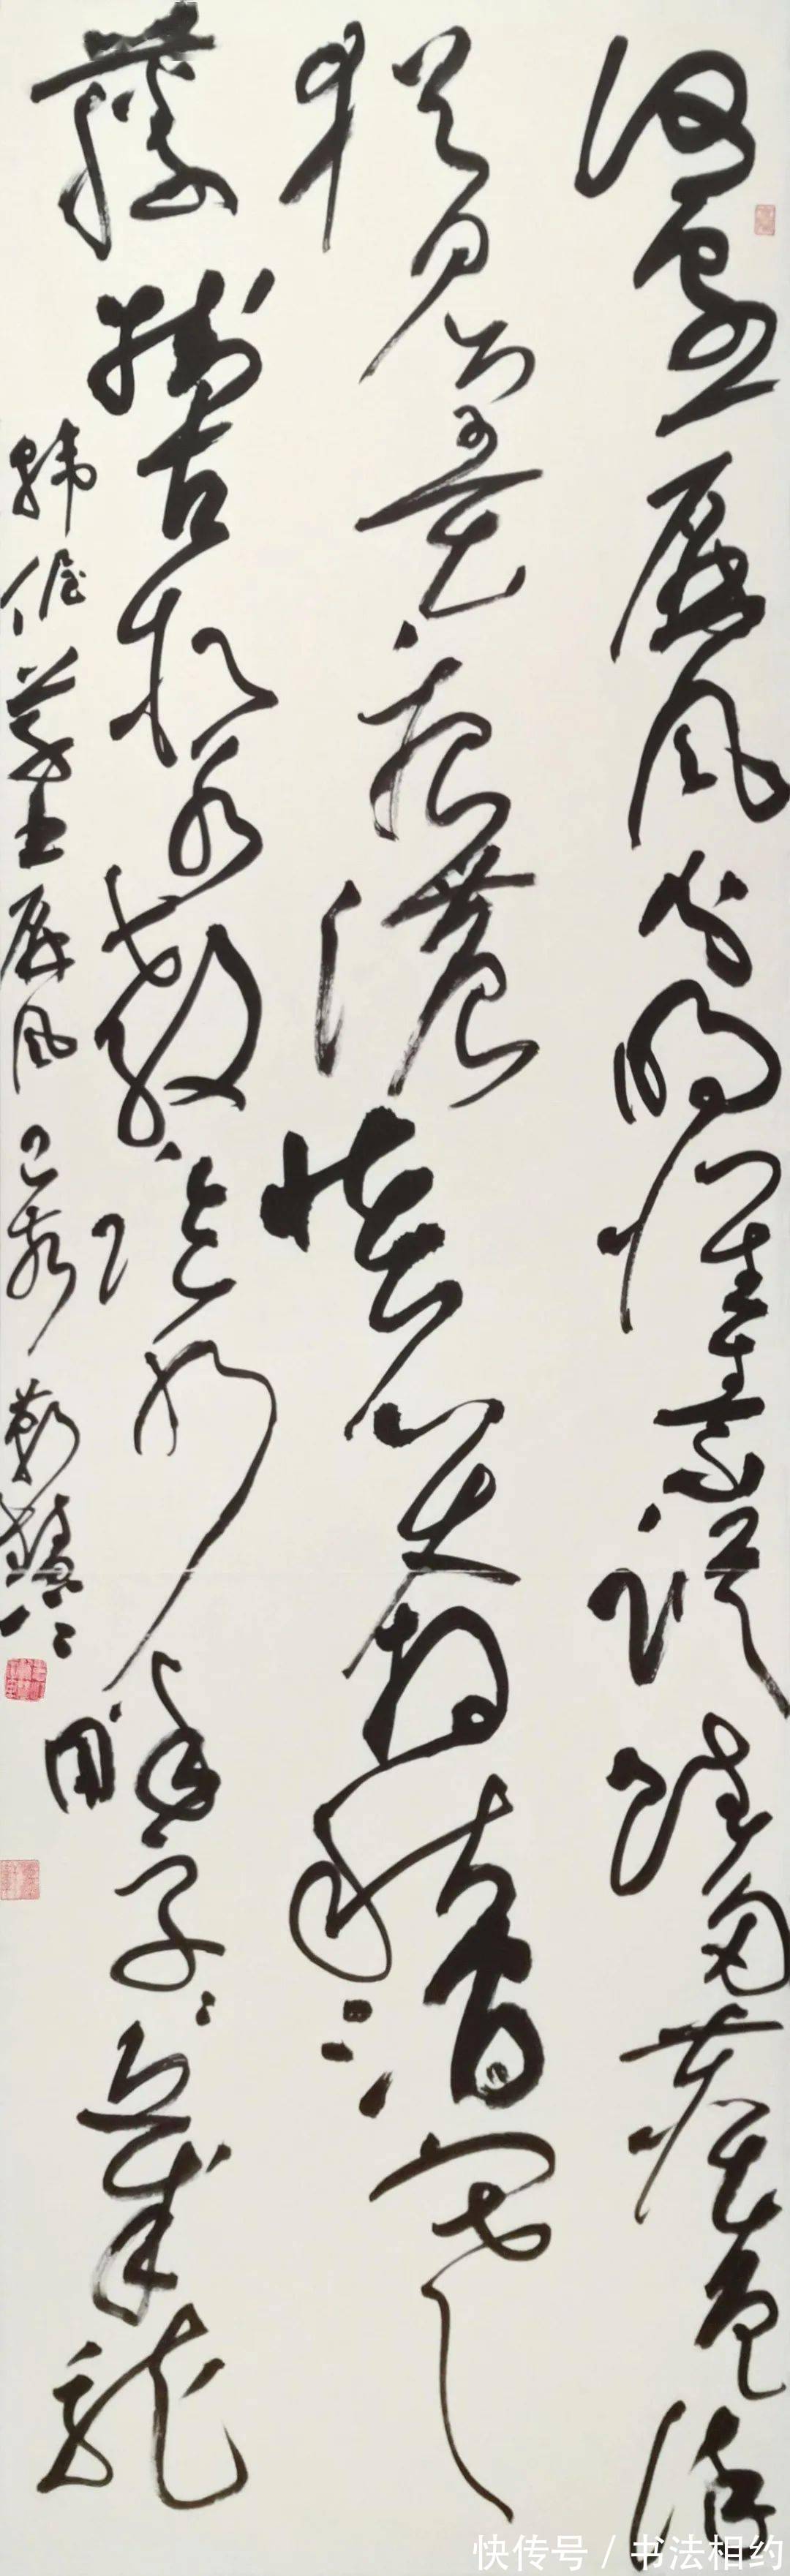 何處一屏風分明懷素蹤雖多塵色染
猶見墨痕濃怪石奔秋澗寒
藤掛古松若教臨水畔字字恐成龍
韓偓草書屏風己亥
快传号 / 书法相约